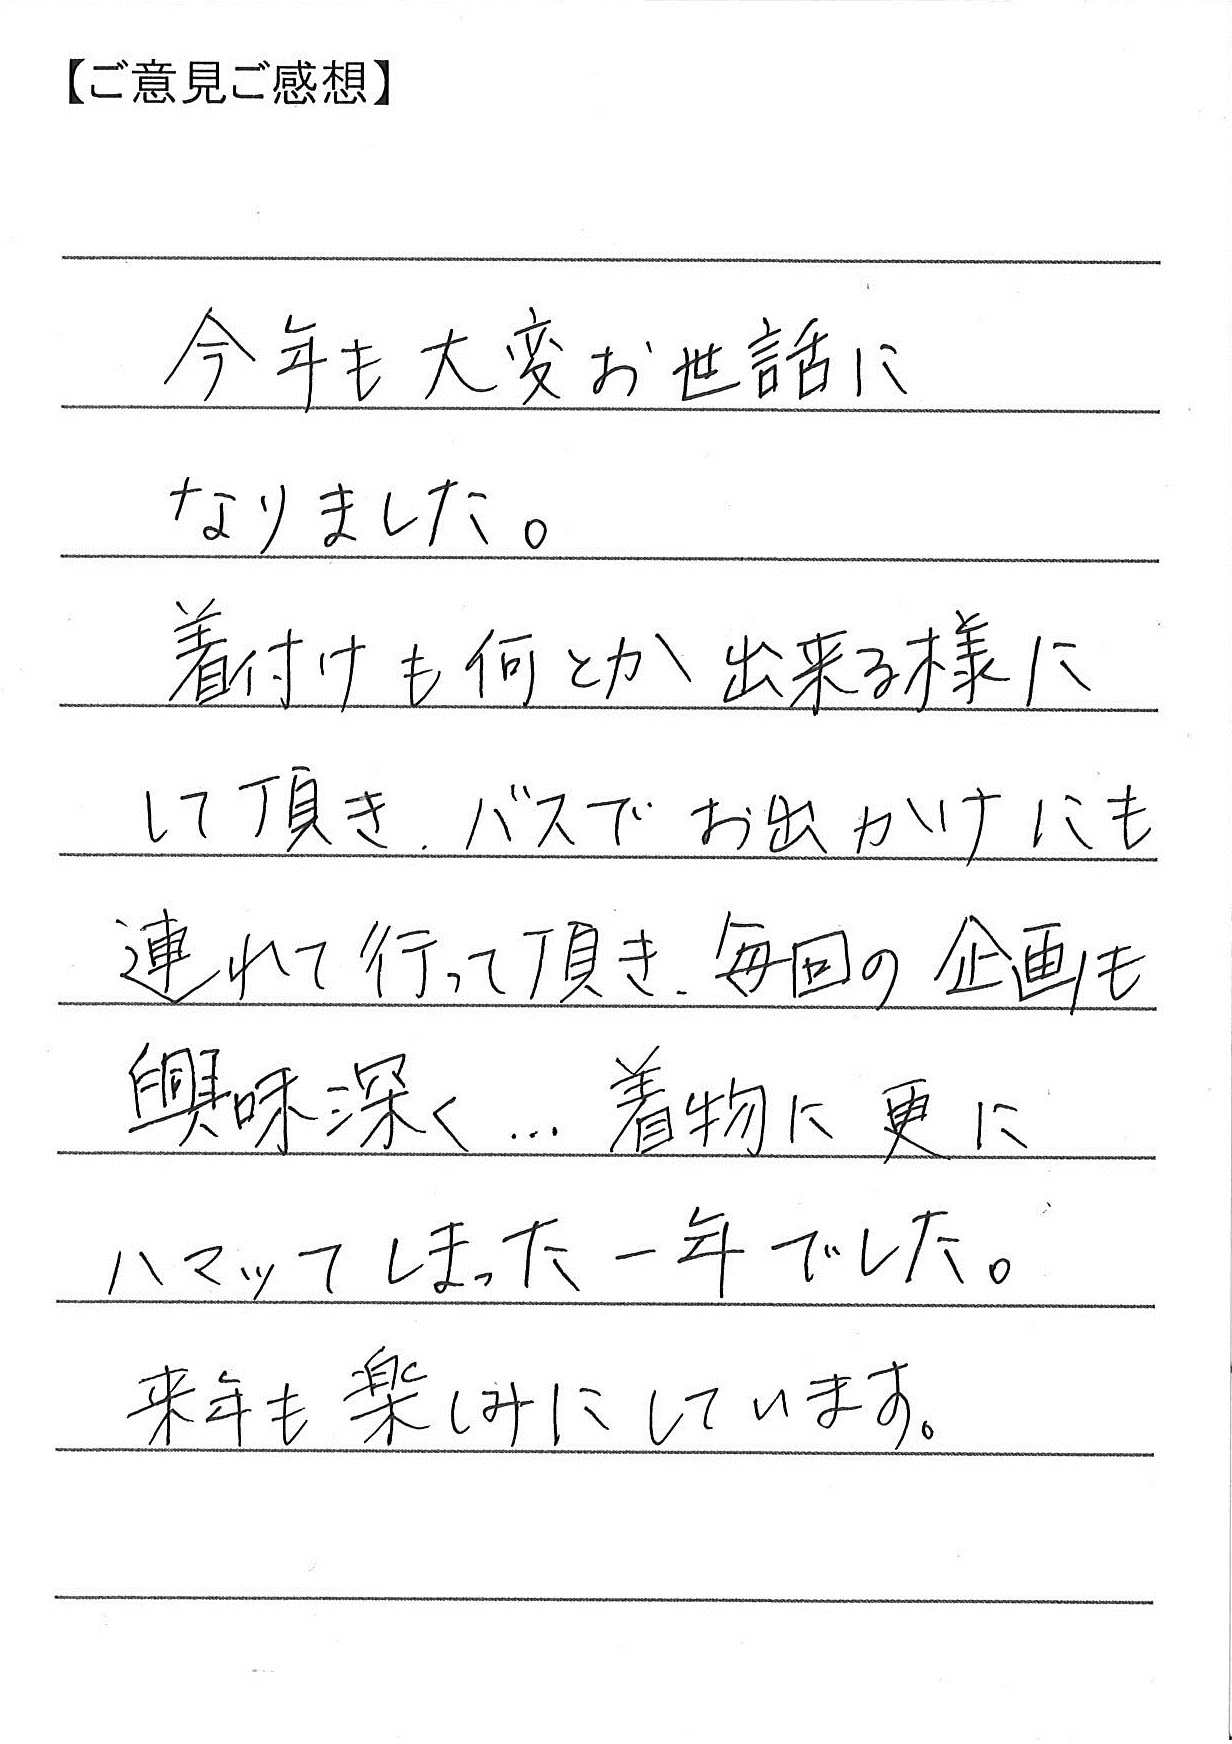 【ご意見ご感想】
今年も大変お世話に
なりました。
着付けも何とか出来る様に
して頂き、バスでお出かけにも
連れて行って頂き、毎回の企画も
興味深く…着物に更に
ハマッてしまった一年でした。
来年も楽しみにしています。